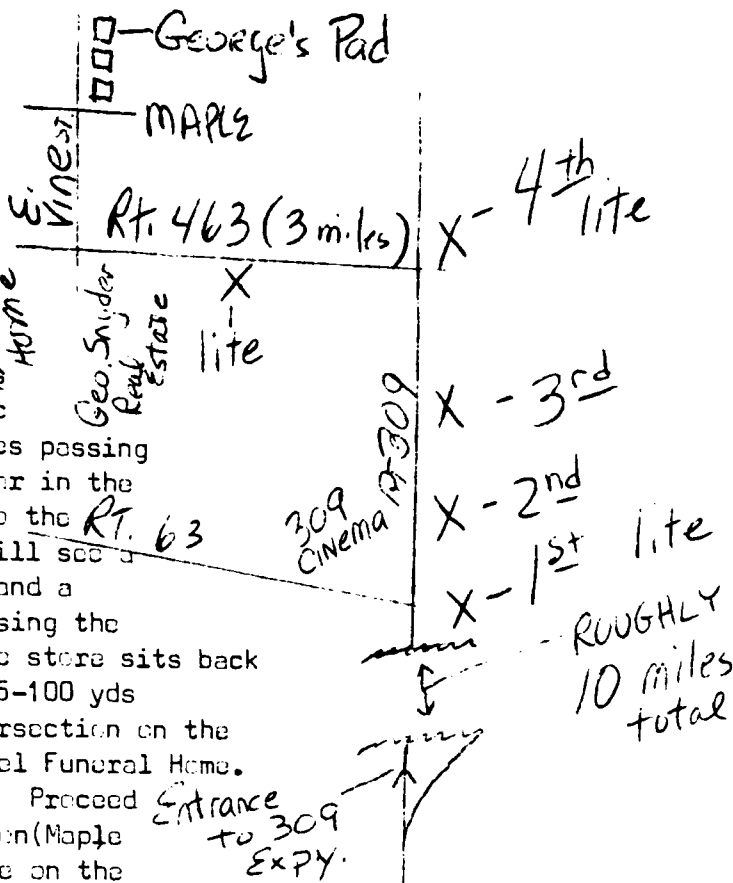 George's Pad
MAPLE
E. Vine ST.
Rt. 463 (3 miles)
X - 4th lite
X
lite
Home
Geo. Snyder
Real
Estate
X - 3rd
Rt 309
309
CINEMA
X - 2nd
X - 1st lite
RT. 63
ROUGHLY
10 miles
total
Entrance
to 309
Expy.
passing
in the
the
ill see a
and a
sing the
store sits back
5-100 yds
rsection on the
el Funeral Home.
Proceed
on(Maple
on the